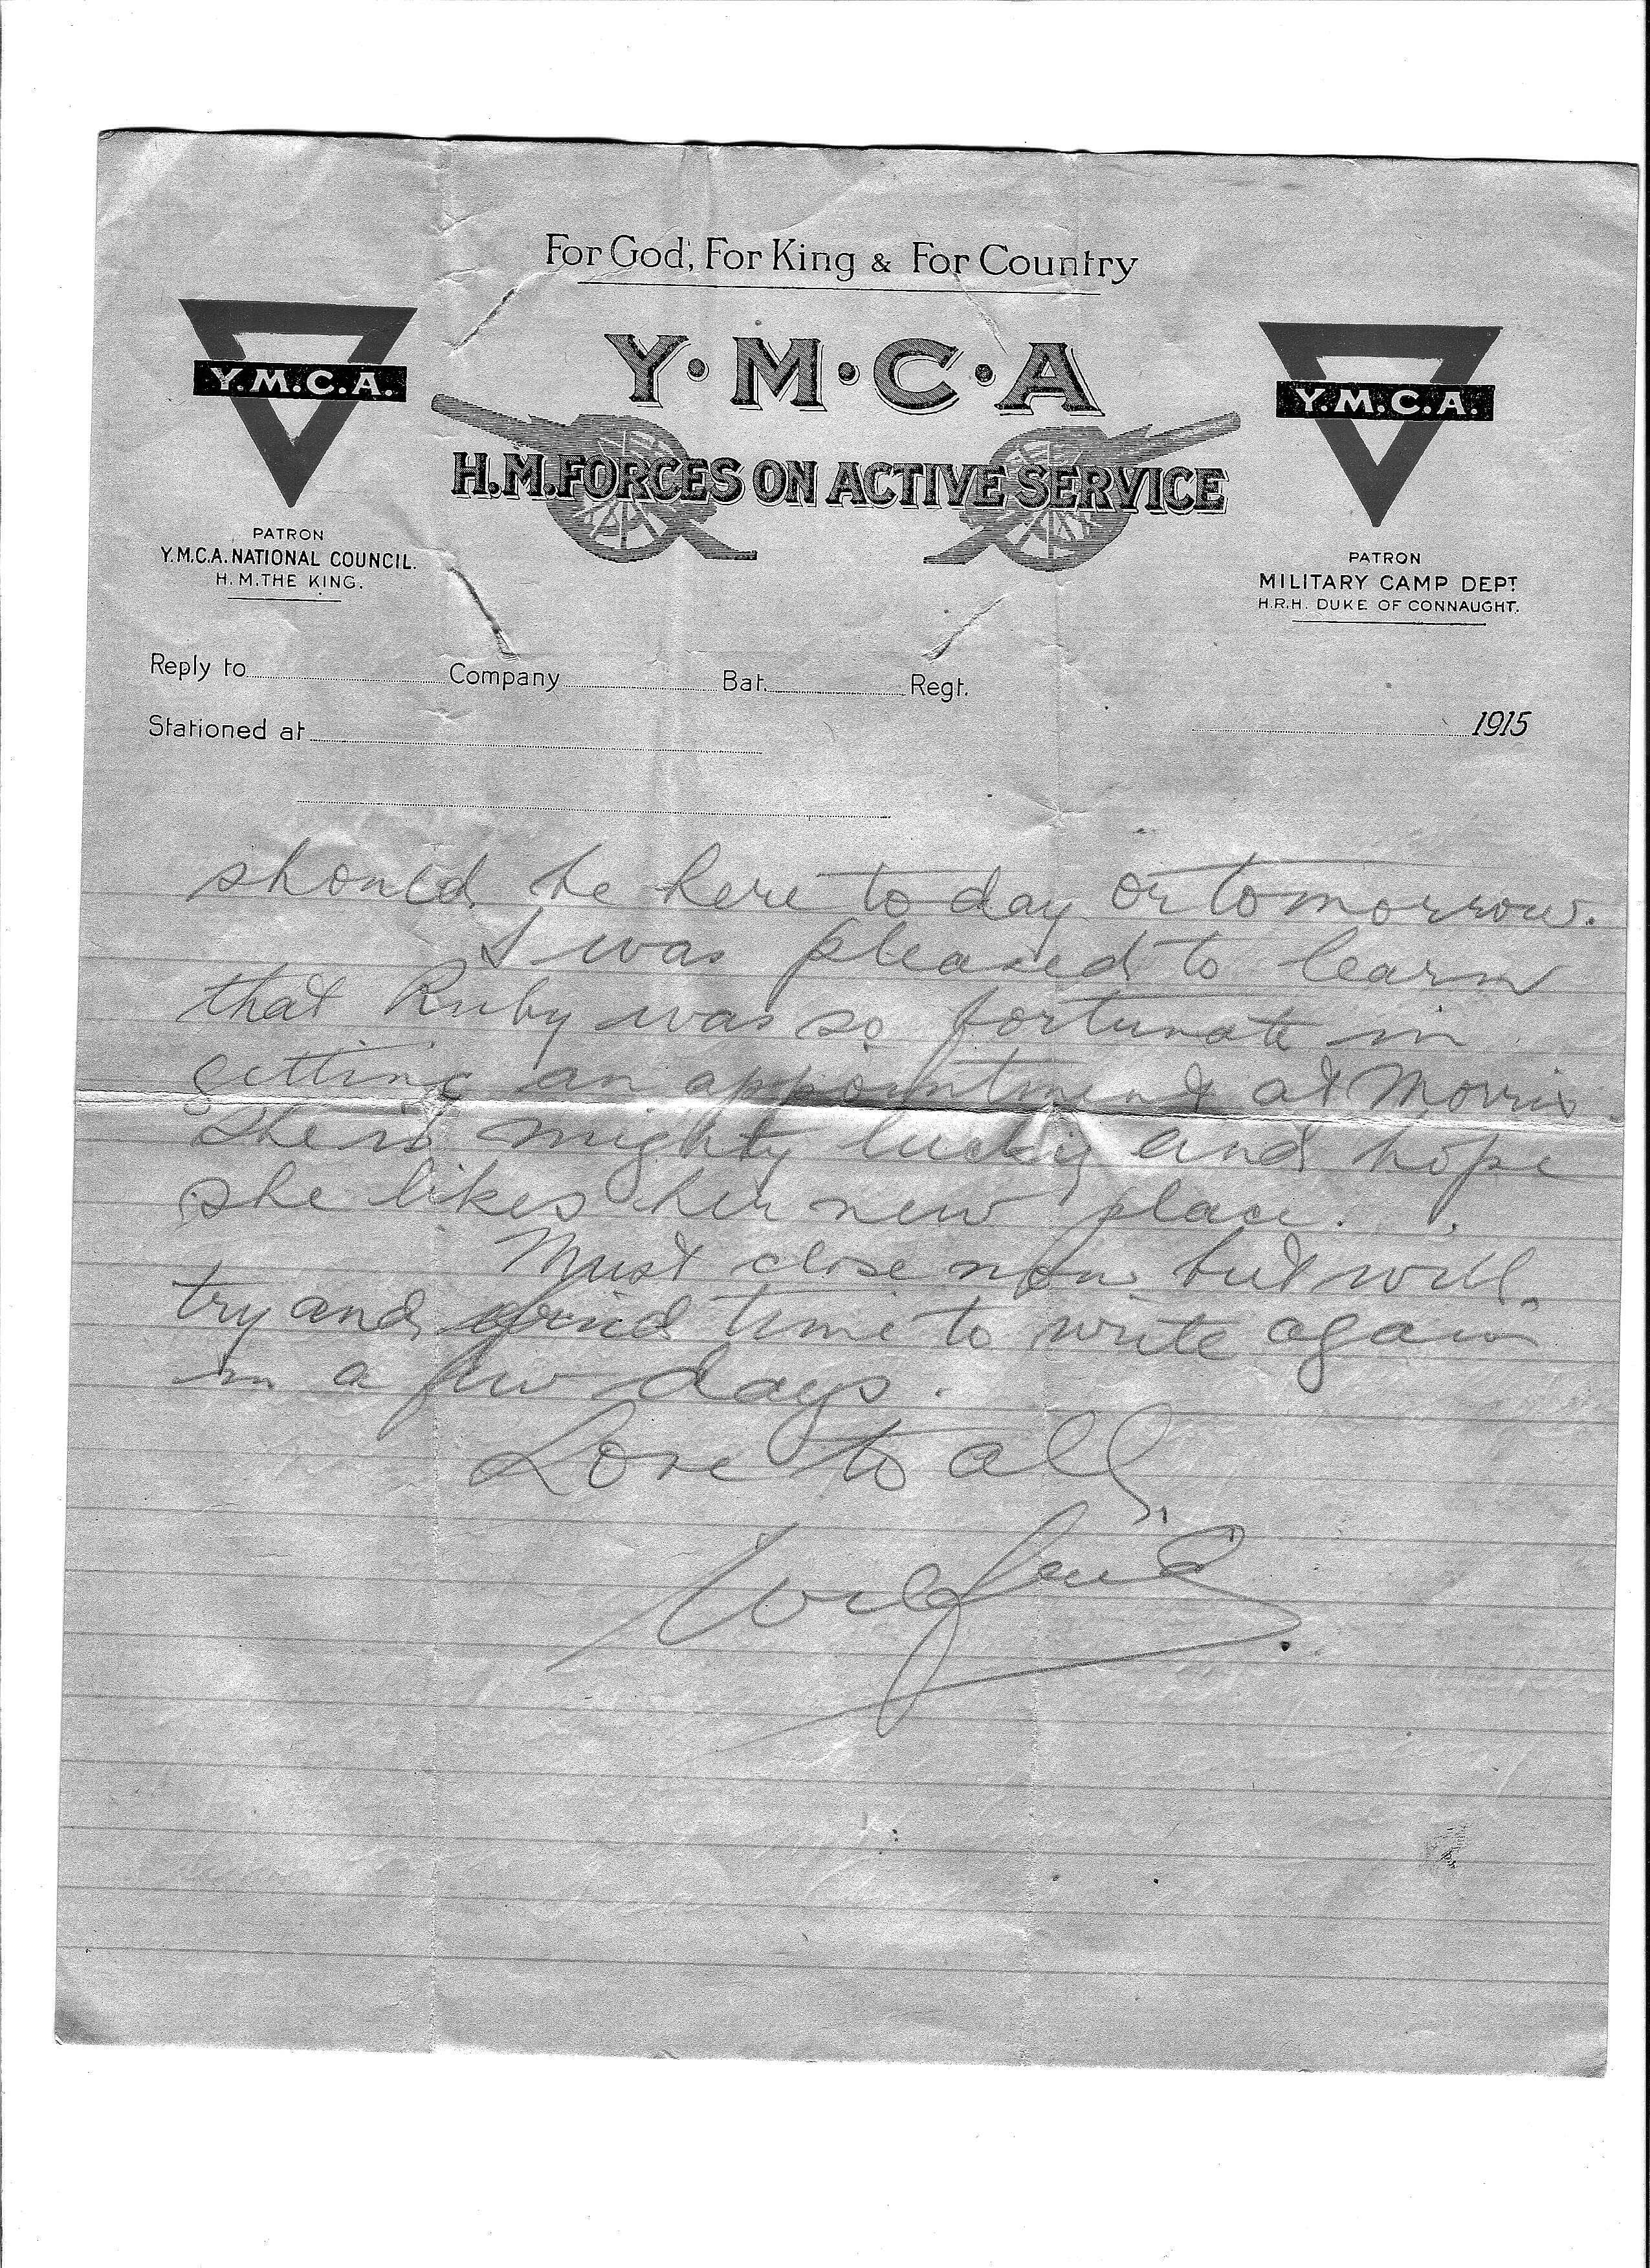 For God, For King & For Country
Y.M.C.A.
Y·M·C·A
Y.M.C.A.
H.M. FORCES ON ACTIVE SERVICE
PATRON
Y.M.C.A. NATIONAL COUNCIL.
H.M. THE KING.
PATRON
MILITARY CAMP DEPT
H.R.H. DUKE OF CONNAUGHT.
Reply to Company Bat. Regt.
Stationed at 1915
should be here to day or tomorrow.
I was pleased to learn
that Ruby was so fortunate in
getting an appointment at Morris.
She is mighty lucky and hope
she likes her new place.
Must close now but will
try and find time to write again
in a few days.
Love to all,
Wilfred